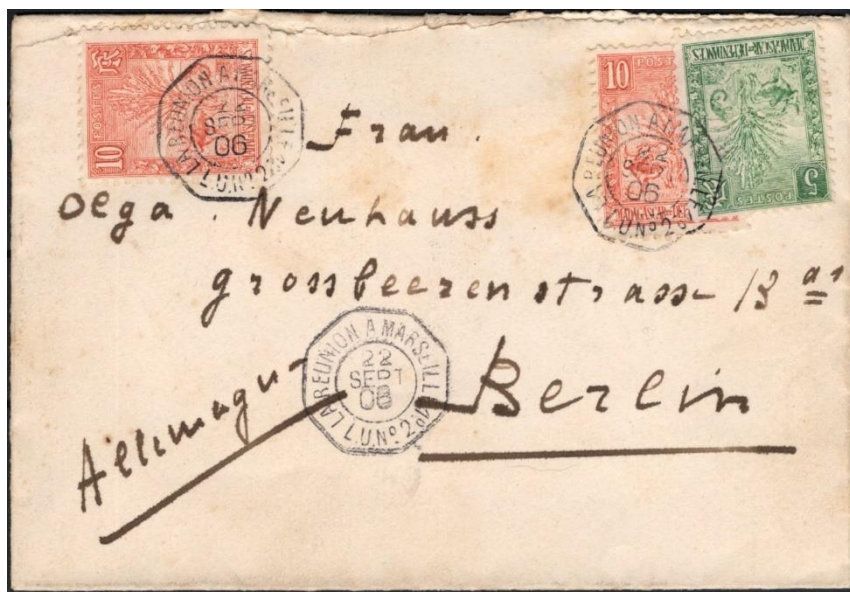 10
POSTES
LA REUNION A MARSEILLE
SEPT
06
L.U.Nº2
10
POSTES
MADAGASCAR ET DEPENDANCES
5
POSTES
LA REUNION A MARSEILLE
06
L.U.Nº2
Frau.
Olga. Neuhauss
grossbeerenstrasse
Berlin
LA REUNION A MARSEILLE
22
SEPT
06
L.U.Nº2
Allemagne